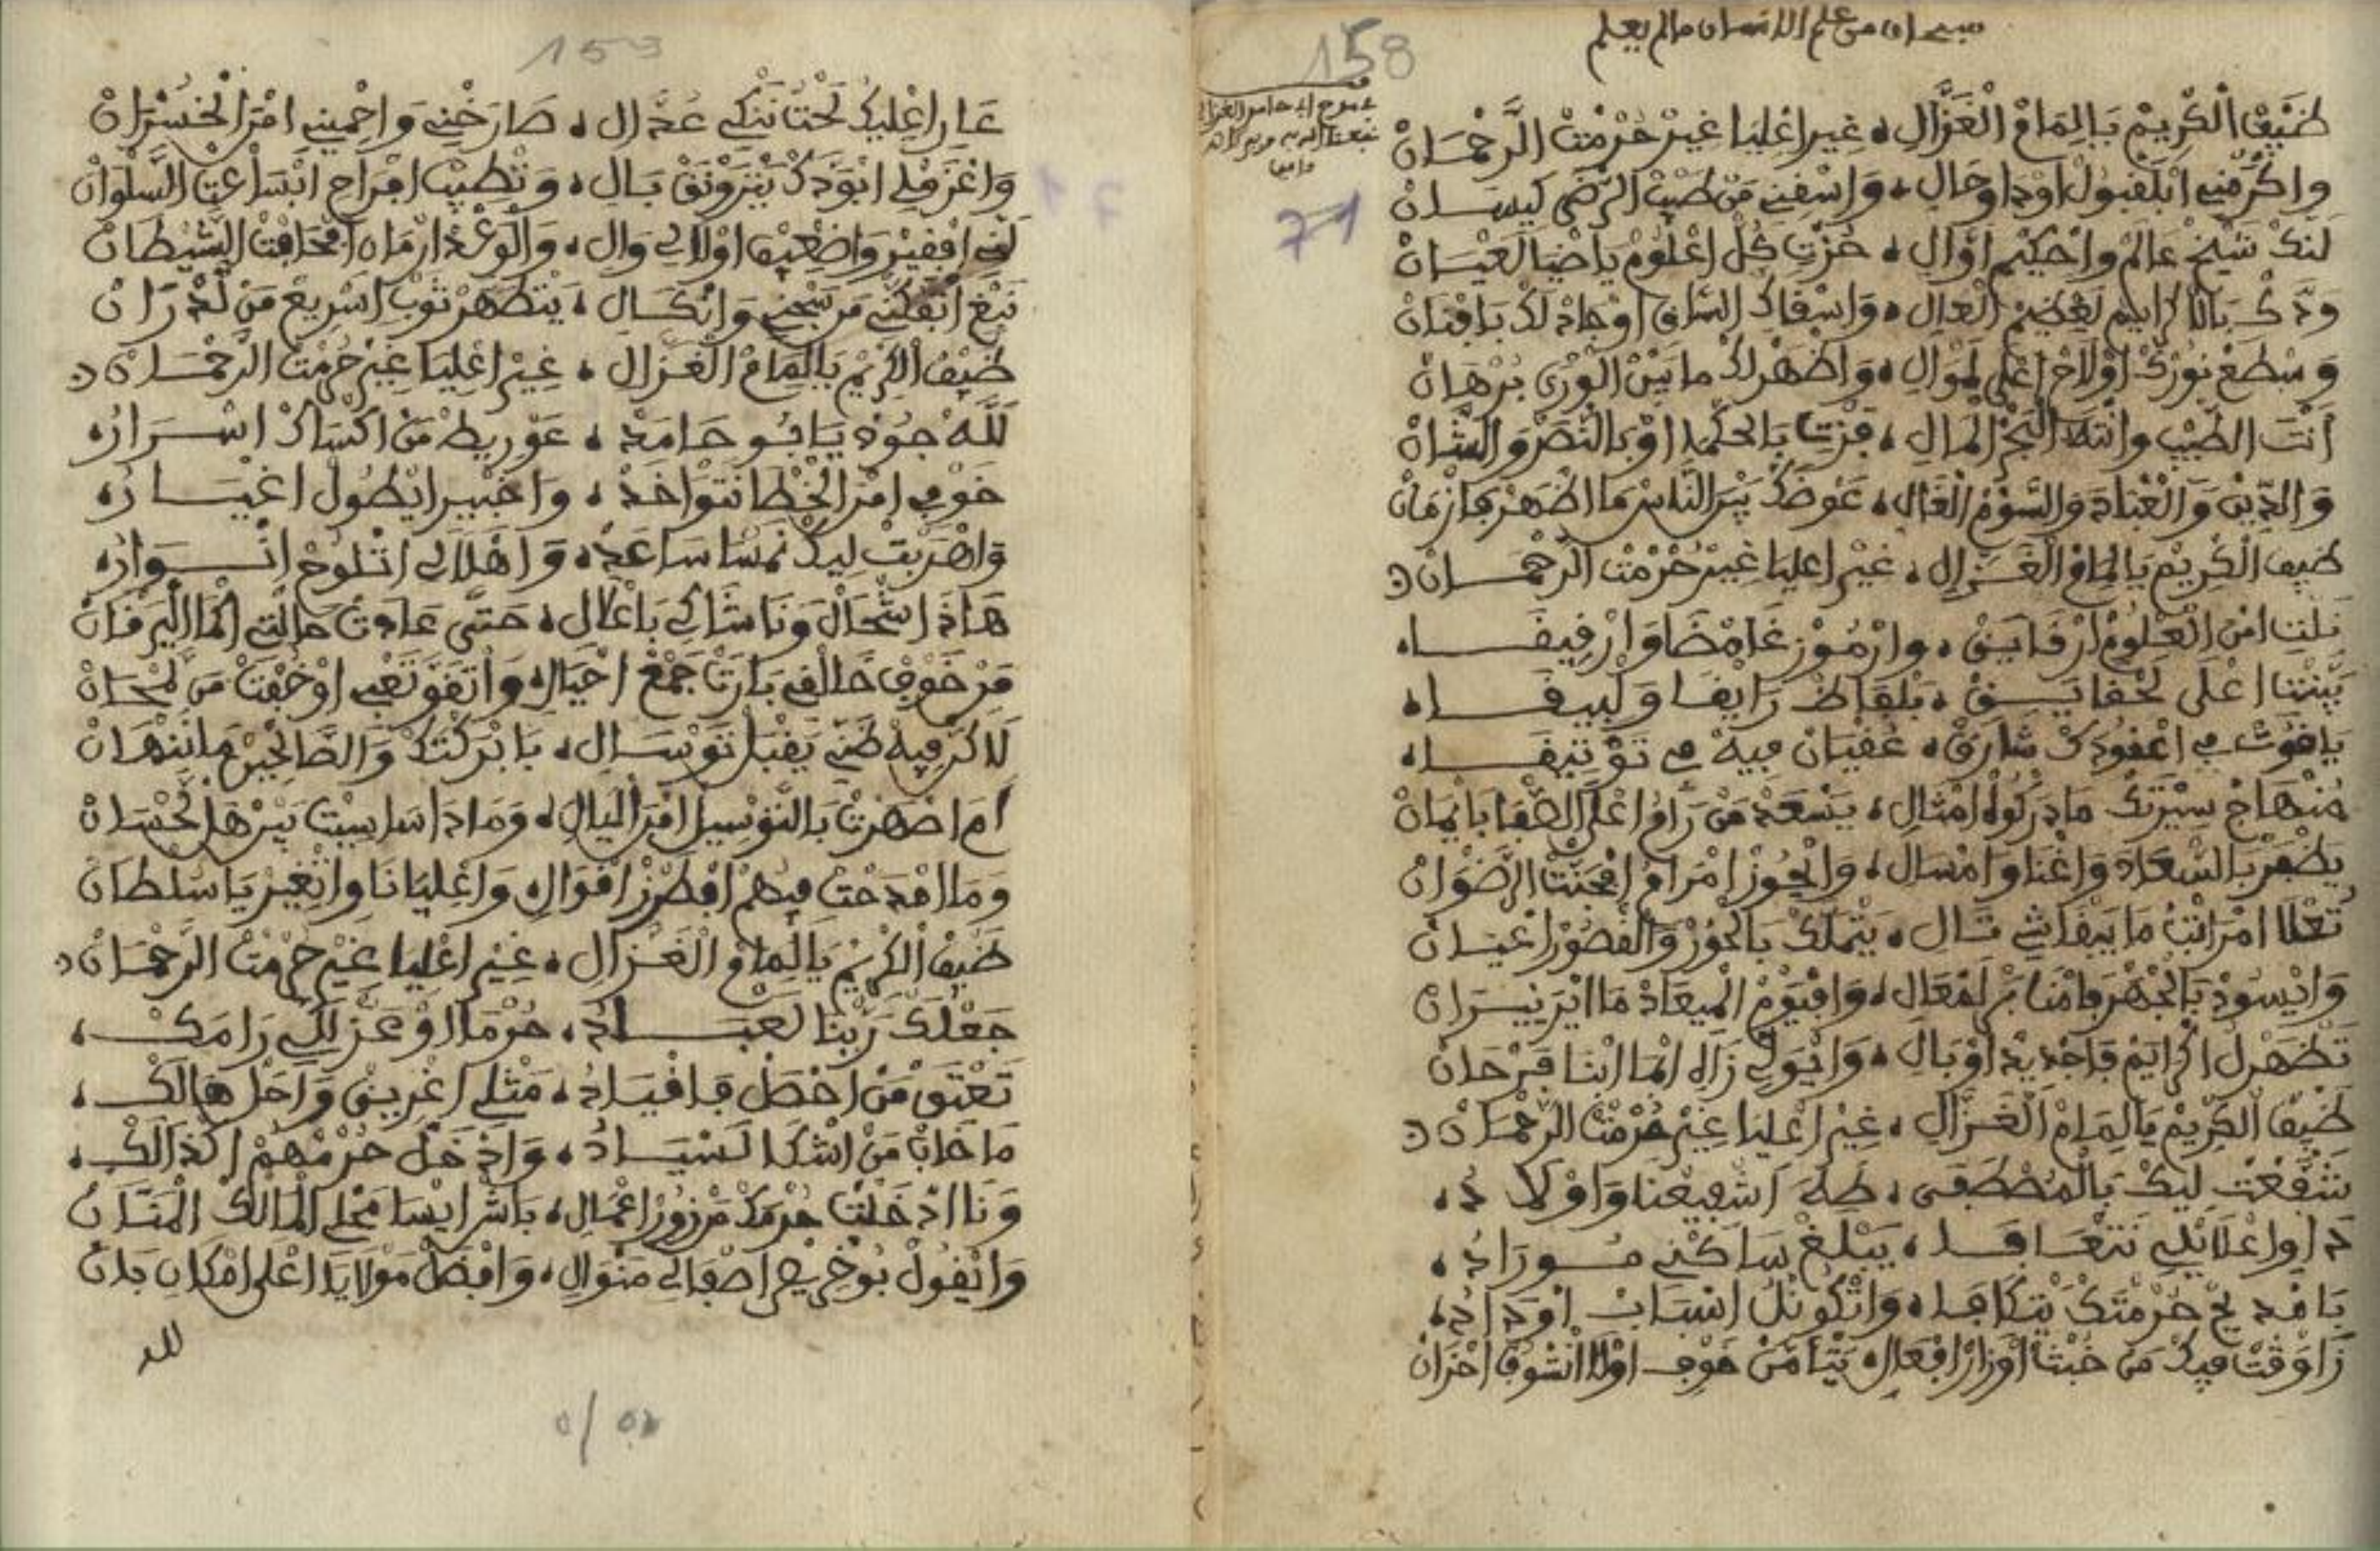 سبحان من علم الانسان مالم يعلم
158
في مدح ابي حامد الغزالي
نفعنا الله به
وامين
71
ضَيْفْ الْكْرِيمْ يَالِمَامْ الْغَزَّالِ، غِيرْ اعْلِيَا غِيرْ حُرْمْتْ الرَّحْمَانْ
وَاكْرَمْنِي ابْلَقْبُولْ اوْدَاوِ حَالِ، وَاسْقِنِي مَنْ طَيْبْ الرّضَى كِيسَانْ
لَنَّكْ شَيْخْ عَالَمْ وَاحْكِيمْ اوَّالِ، حُزْتِ كُلْ اعْلُومْ يَاضْيَا لَعْيَانْ
وَدّكْ بَالْاكْرَايَمْ لَعْظِيمْ الْعَالِ، وَاسْقَاكْ السَّاقِ اوْجَادْ لَكْ بَافْنَانْ
وَسْطَعْ نُورَكْ اوْلَاحْ اعْلَى لَمْوَالِ، وَاظْهَرْ لَكْ مَا بَيْنْ الْوْرَى بُرْهَانْ
اَنْتَ الطْبِيبْ وَانْتَ الْبَحْرْ الْمَالِ، فَزْتِ بَالْحَكْمَا اوْ بَالنّصَرْ وَالشَّانْ
وَالدِّينْ وَالْعْبَادَ وَالسَّوْمْ الْغَالِ، عَوْضَكْ بَيْنْ النَّاسْ مَا اظْهَرْ فَازْمَانْ
ضَيْفْ الْكْرِيمْ يَالِمَامْ الْغَزَّالِ، غِيرْ اعْلِيَا غِيرْ حُرْمْتْ الرَّحْمَانْ
نَلْتِ امْنْ الْعْلُومْ ارْقَايَقْ، وَارْمُوزْ غَامْضَا وَارْقِيقَا،
بَيَّنْتْنَا اعْلَى لَحْقَايَقْ، بَلْفَاظْ رَايْقَا وَلْبِيقَا،
يَاقُوتْ فِي اعْقُودَكْ شَارَقْ، عُقْيَانْ فِيهْ فِي تَوْثِيقَا،
مَنْهَاجْ سِيرْتَكْ مَادَرْكُوهْ امْثَالِ، يَسْعَدْ مَنْ رَامُ اعْلَى الصّْفَا بَايْمَانْ
يَظْهَرْ بَالسّْعَادَ وَاغْنَا وَامْسَالِ، وَايْحُوزْ امْرَامُ افْجَنّْتْ الرَّضْوَانْ
تَعْلَا امْرَاتْبُ مَا يَبْقَاشِي تَالِ، يَتْمَلَّكْ بَالْحُورْ وَالْقْصُورْ اعْيَانْ
وَايْسُودْ بَالْجْهَرْ فَامْنَابَرْ لَمْعَالِ، وَافْيُومْ الْمِيعَادْ مَا ايْرَى نِيرَانْ
تَظْهَرْ لْ اكْرَايَمْ فَاجْدِيدْ اوْبَالِ، وَايْوَلِّي زَاهِ
ضَيْفْ الْكْرِيمْ يَالِمَامْ الْغَزَّالِ، غِيرْ اعْلِيَا غِيرْ حُرْمْتْ الرَّحْمَانْ
نَتْشَفّعْتْ لِيكْ بَالْمُصْطَفَى، طَهَ اشْفِيعْنَا وَاوْلَادُ،
دَاوِ اعْلَايْلِي نَتْعَافَا، يَبْلَغْ سَاكْنِي مُورَادُ،
يَامْدِيحْ حُرْمْتَكْ نَتْكَافَا، وَاتْكُونْلُ اسْبَابْ اوْدَادُ،
زَاوَقْتْ فِيكْ مَنْ خُبْثْ اوْزَارْ افْعَالِ
153
عَارِ اعْلِيكْ لَحْتْ نَنْكِي عَدَّالِ، صَارَخْنِي وَاحْمِينِي امْنْ الْخُسْرَانْ
وَاعْزَمْ لِي ابْوَدَّكْ يَتْرَوْنَقْ بَالِ، وَتْطِيبْ افْرَاحِ ابْسَاعْتْ السَّلْوَانْ
لَنِّي افْقِيرْ وَاضْعِيفْ اوْلَا لِي وَالِ، وَالْوَغْدْ ارْمَاهْ افْحَافْتْ الشّيْطَانْ
نَبْغِ اتْفَكْنِي مَنْ سَجْنِي وَانْكَالِ، يَتْطَهَّرْ ثَوْبِ اسْرِيعْ مَنْ لَدْرَانْ
ضَيْفْ الْكْرِيمْ يَالِمَامْ الْغَزَّالِ، غِيرْ اعْلِيَا غِيرْ حُرْمْتْ الرَّحْمَانْ
لَلَّهْ جُودْ يَابُو حَامَدْ، عَوْرِيطْ مَنْ اكْسَاكْ اسْرَارُ،
خَوْفِي امْنْ الْخْطَا نَتْوَاخَذْ، وَاخْبِيرْ ايْطُولْ اغْيَارُ،
وَاهْرَبْتْ لِيكْ نَمْشَا سَاعَدْ، وَاهْلَالِي اتْلُوحْ انْوَارُ،
هَاذَا شْحَالْ وَنَا شَاكِي بَاعْلَالِ، حَتَّى عَادَتْ حَالْتِي اكْمَا الْيَرْقَانْ
مَنْ خَوْفْ خَالْقِي بَارْتْ جَمْعْ احْيَالِ، وَاتْقَوَّى تَعْبِي اوْخَفْتْ مَنْ لَمْحَانْ
لَاكَنْ فِيهْ ظَنِّي يَقْبَلْ تَوْسَالِ، يَا بَرْكْتَكْ وَالصَّالْحِينْ مَا نَنْهَانْ
امَا اصْهَرْتْ بَالتَّوْسِيلْ امْنْ الْيَالِ، وَمَادَا سَاسِيتْ بَيْنْ هَلْ لَحْسَانْ
وَمَا امْدَحْتْ فِيهُمْ افْطَرْزْ اقْوَالِ، وَاعْلِيَانَا وَاتْغِيرْ يَاسُلْطَانْ
ضَيْفْ الْكْرِيمْ يَالِمَامْ الْغَزَّالِ، غِيرْ اعْلِيَا غِيرْ حُرْمْتْ الرَّحْمَانْ
جَعْلَكْ رَبّْنَا لَعْبَادُ، حُرْمَا اوْعَزّ لَلِّي رَامَكْ،
تَعْتَقْ مَنْ احْصَلْ فَاقْيَادُ، مَثْلِي اغْرِيقْ وَاحَلْ هَالَكْ،
مَا خَابْ مَنْ اشْكَا لَسْيَادُ، وَادْخَلْ حُرْمْهُمْ اكْذَالَكْ،
وَنَا ادْخَلْتْ حُرْمَكْ مَنْ زُورْ اعْمَالِ، بَاشْ ايْسَامَحْ لِي الْمَالَكْ الْمَنَّانْ
وَايْقُولْ بُوخْرِيصْ اصْفَا لِي مَنْوَالِ، وَافْضَلْ مَوْلَايَا اعْلَى امْكَانِ بَانْ
لله